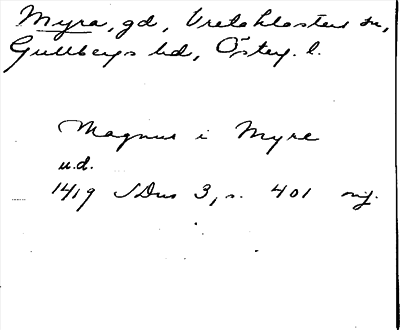 Myra, gd, Vreta klosters sn,
Gullbergs hd,Österg. l.
Magnus i Myre
u.d.
1419 SDns 3, s. 401 orig.